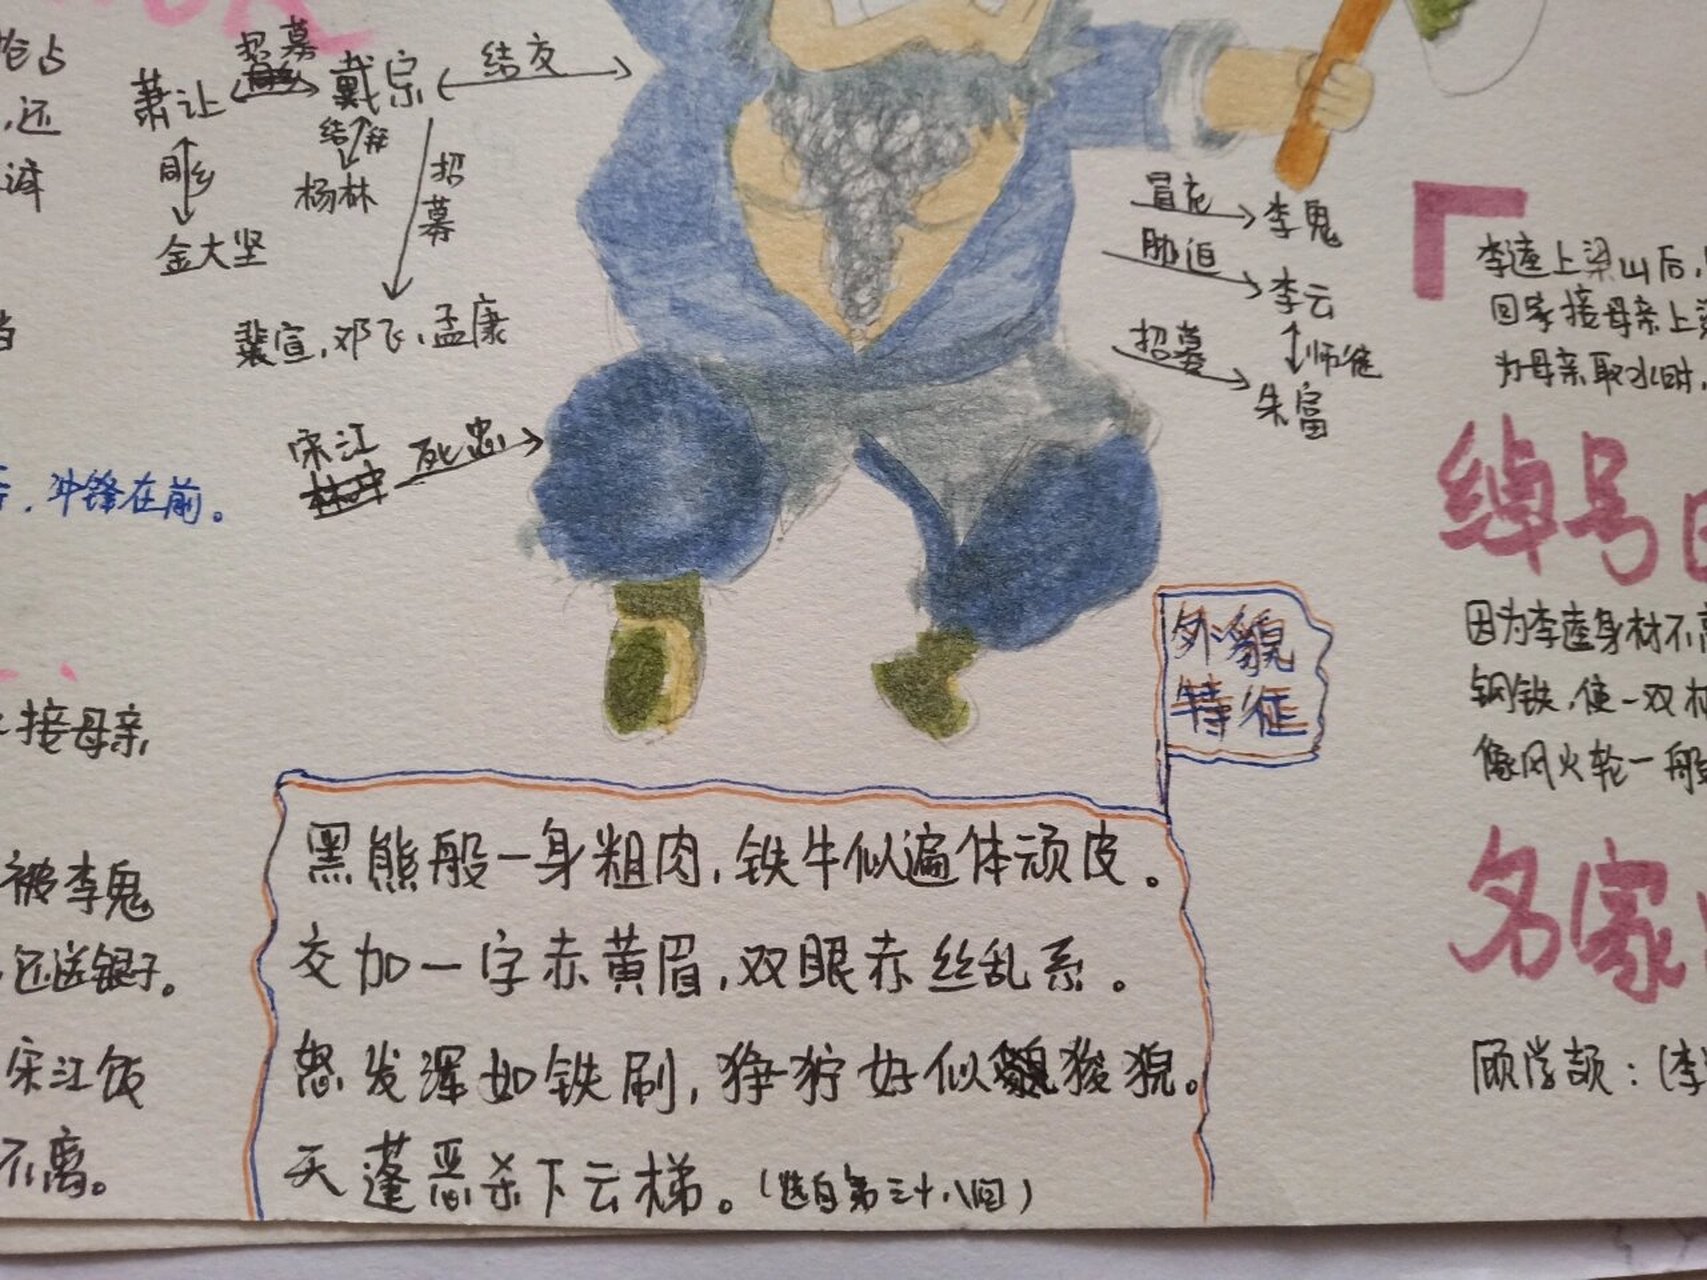 抢占
招募
萧让
戴宗
结交
,还
结拜
同乡
杨林
招募
金大坚
裴宣,邓飞,孟康
宋江
死忠
,冲锋在前。
冒充
李鬼
胁迫
李云
师徒
招募
朱富
李逵上梁山后,
回家接母亲上
为母亲取水时,
绰号
因为李逵身材不
钢铁,使一双
像风火轮一般
名家
顾学颉:(李
接母亲
被李鬼
,还送银子。
宋江饭
不离。
外貌
特征
黑熊般一身粗肉,铁牛似遍体顽皮。
交加一字赤黄眉,双眼赤丝乱系。
怒发浑如铁刷,狰狞好似狻猊。
天蓬恶杀下云梯。(选自第三十八回)